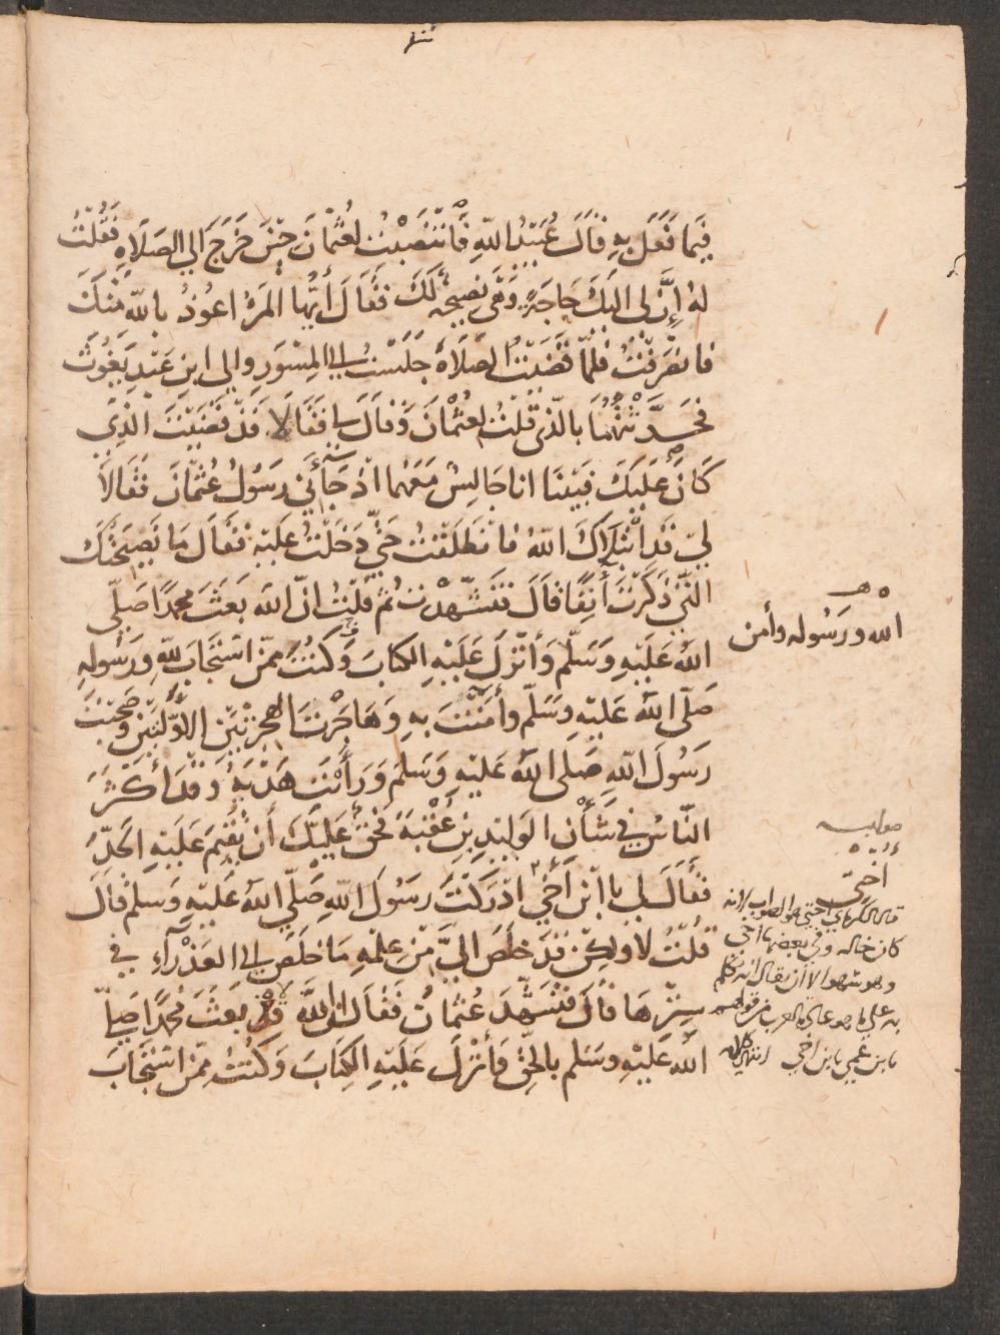 فِيمَا فَعَلَ بِهِ قَالَ عُبَيْدُ اللَّهِ فَانْتَصَبْتُ لِعُثْمَانَ حِينَ خَرَجَ إِلَى الصَّلَاةِ فَقُلْتُ
لَهُ إِنَّ لِي إِلَيْكَ حَاجَةً وَهْيَ نَصِيحَةٌ لَكَ فَقَالَ أَيُّهَا الْمَرْءُ أَعُوذُ بِاللَّهِ مِنْكَ
فَانْصَرَفْتُ فَلَمَّا قَضَيْتُ الصَّلَاةَ جَلَسْتُ إِلَى الْمِسْوَرِ وَإِلَى ابْنِ عَبْدِ يَغُوثَ
فَحَدَّثْتُهُمَا بِالَّذِي قُلْتُ لِعُثْمَانَ وَقَالَ لِي فَقَالَا قَدْ قَضَيْتَ الَّذِي
كَانَ عَلَيْكَ فَبَيْنَا أَنَا جَالِسٌ مَعَهُمَا إِذْ جَاءَنِي رَسُولُ عُثْمَانَ فَقَالَا
لِي قَدِ ابْتَلَاكَ اللَّهُ فَانْطَلَقْتُ حَتَّى دَخَلْتُ عَلَيْهِ فَقَالَ مَا نَصِيحَتُكَ
الَّتِي ذَكَرْتَ آنِفًا قَالَ فَتَشَهَّدْتُ ثُمَّ قُلْتُ إِنَّ اللَّهَ بَعَثَ مُحَمَّدًا صَلَّى
اللَّهُ عَلَيْهِ وَسَلَّمَ وَأَنْزَلَ عَلَيْهِ الْكِتَابَ وَكُنْتَ مِمَّنْ اسْتَجَابَ لِلَّهِ وَرَسُولِهِ
صَلَّى اللَّهُ عَلَيْهِ وَسَلَّمَ وَآمَنْتَ بِهِ وَهَاجَرْتَ الْهِجْرَتَيْنِ الْأُولَيَيْنِ وَصَحِبْتَ
رَسُولَ اللَّهِ صَلَّى اللَّهُ عَلَيْهِ وَسَلَّمَ وَرَأَيْتَ هَدْيَهُ وَقَدْ أَكْثَرَ
النَّاسُ فِي شَأْنِ الْوَلِيدِ بْنِ عُقْبَةَ فَحَقٌّ عَلَيْكَ أَنْ تُقِيمَ عَلَيْهِ الْحَدَّ
فَقَالَ لِي يَا ابْنَ أَخِي أَدْرَكْتَ رَسُولَ اللَّهِ صَلَّى اللَّهُ عَلَيْهِ وَسَلَّمَ قَالَ
قُلْتُ لَا وَلَكِنْ قَدْ خَلَصَ إِلَيَّ مِنْ عِلْمِهِ مَا خَلَصَ إِلَى الْعَذْرَاءِ فِي
سِتْرِهَا قَالَ فَتَشَهَّدَ عُثْمَانُ فَقَالَ إِنَّ اللَّهَ قَدْ بَعَثَ مُحَمَّدًا صَلَّى
اللَّهُ عَلَيْهِ وَسَلَّمَ بِالْحَقِّ وَأَنْزَلَ عَلَيْهِ الْكِتَابَ وَكُنْتُ مِمَّنْ اسْتَجَابَ
الله ورَسُوله وأمن
أُخْتِي
قال الكرماني اختي هو الصواب لانه
كان خاله وفي بعضها يا أخي
وهو سهو الا ان يقال انه تكلم
به على ما هو عادة العرب من قولهم
يا بن عمي يا بن اخي انتهى كلامه